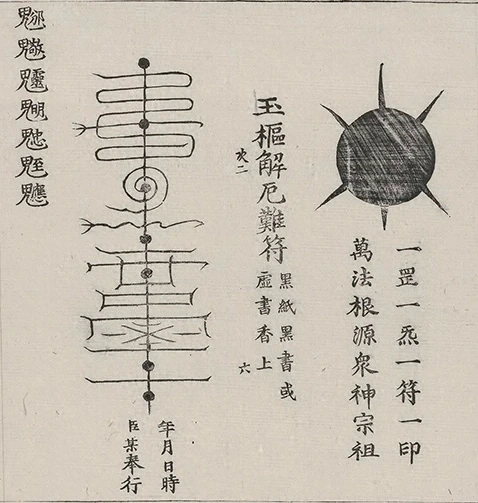 一罡一炁一符一印
萬法根源衆神宗祖
玉樞解厄難符
次二
黑紙黑書或
虛書香上
六
年月日時
臣某奉行